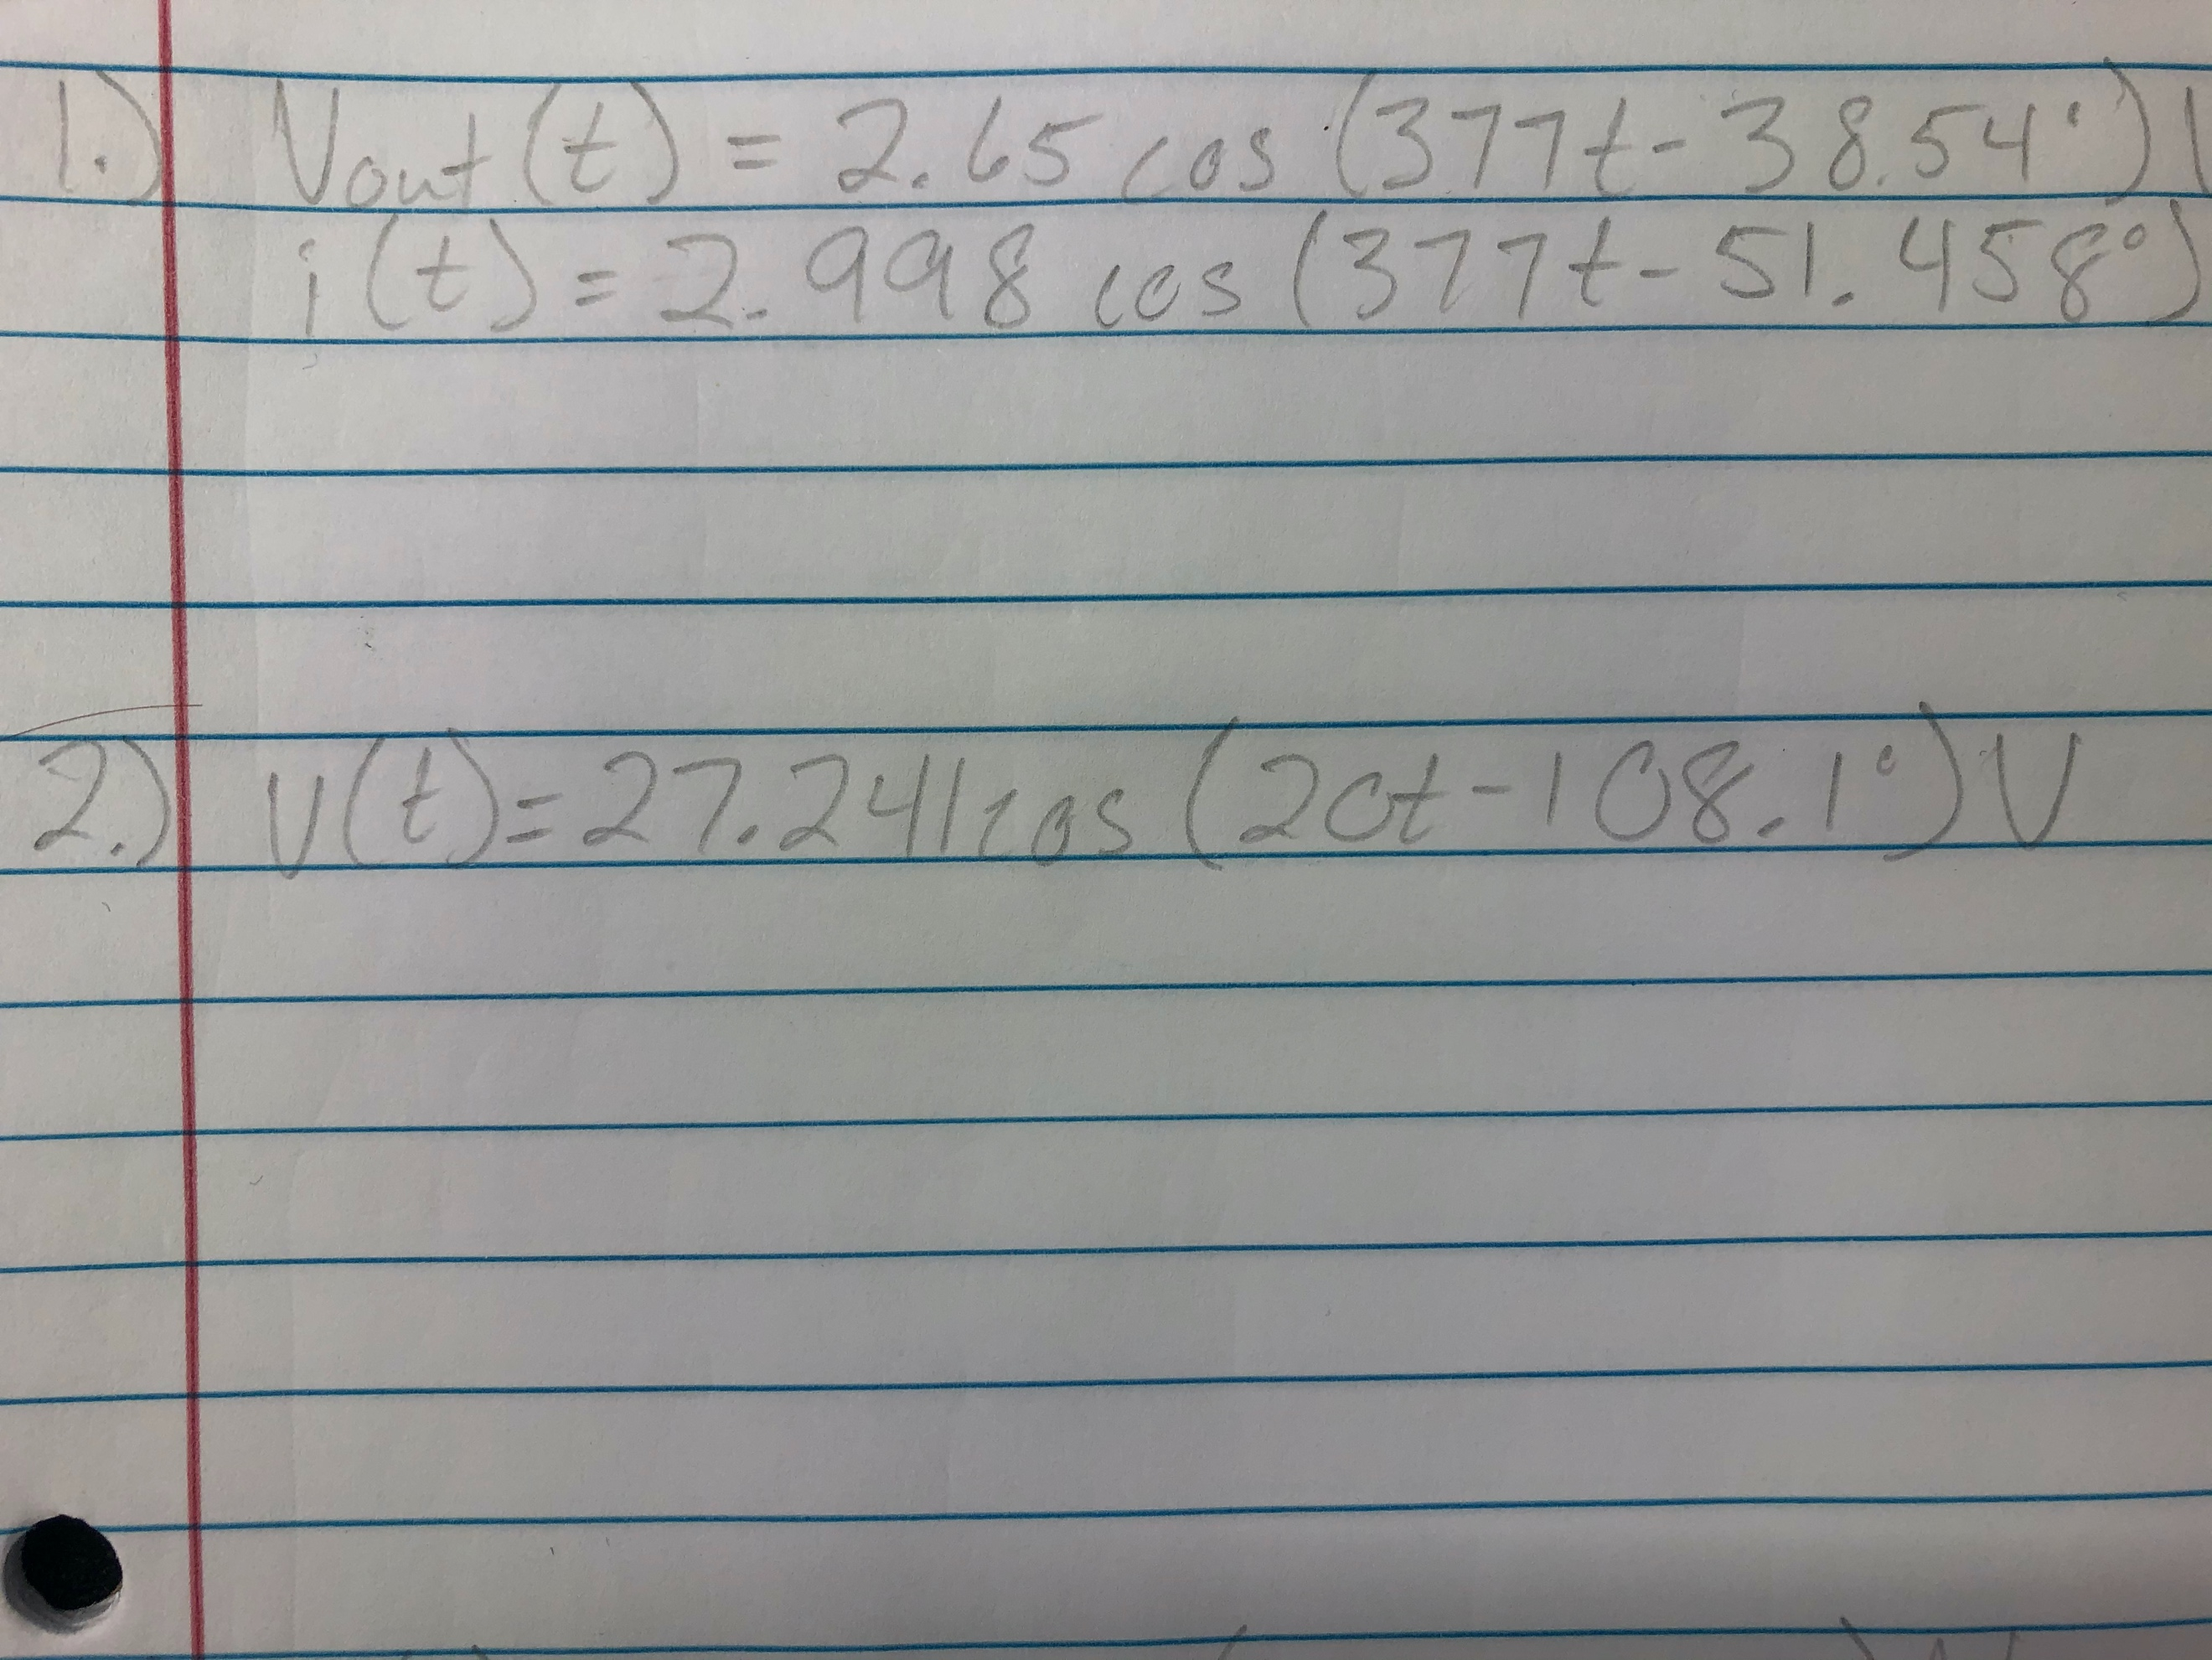 1.) Vout(t) = 2.65 cos (377t - 38.54°)
i(t) = 2.998 cos (377t - 51.458°)
2.) V(t) = 27.241cos (20t - 108.1°) V